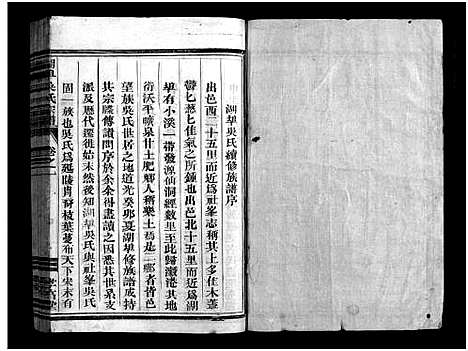 湖埠吳氏續修族譜序
出邑西二十五里而近為社峯志稱其上佳木蓋
鬱匕葱匕佳氣之所鍾也出邑北十五里而近為湖
埠有小溪一帶發源仙洞經數里至此歸瀫港其地
衍沃平曠泉甘土肥鄉人稱樂土焉是二鄉者皆邑
望族吳氏世居之地道光癸卯夏湖埠修族譜成持
其宗牒傳讀問序於余余得盡讀之因悉其世系支
派及歷代遷徙始末然後知湖埠吳氏與社峯吳氏
固一族也吳氏為延陵肯裔枝葉蔓布天下宋末有
吳氏宗譜
卷之一